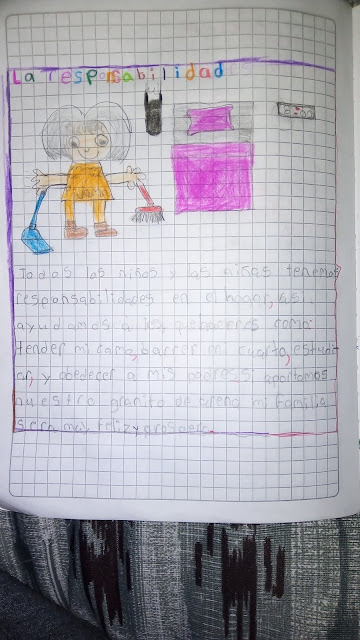 La responsabilidad
Todos los niños y las niñas tenemos
responsabilidades en el hogar, asi
ayudamos a los quehaceres como:
tender mi cama, barrer mi cuarto, estudi
ar, y obedecer a mis padres, s aportamos
nuestro granito de arena mi familia
serra muy feliz y prospera.